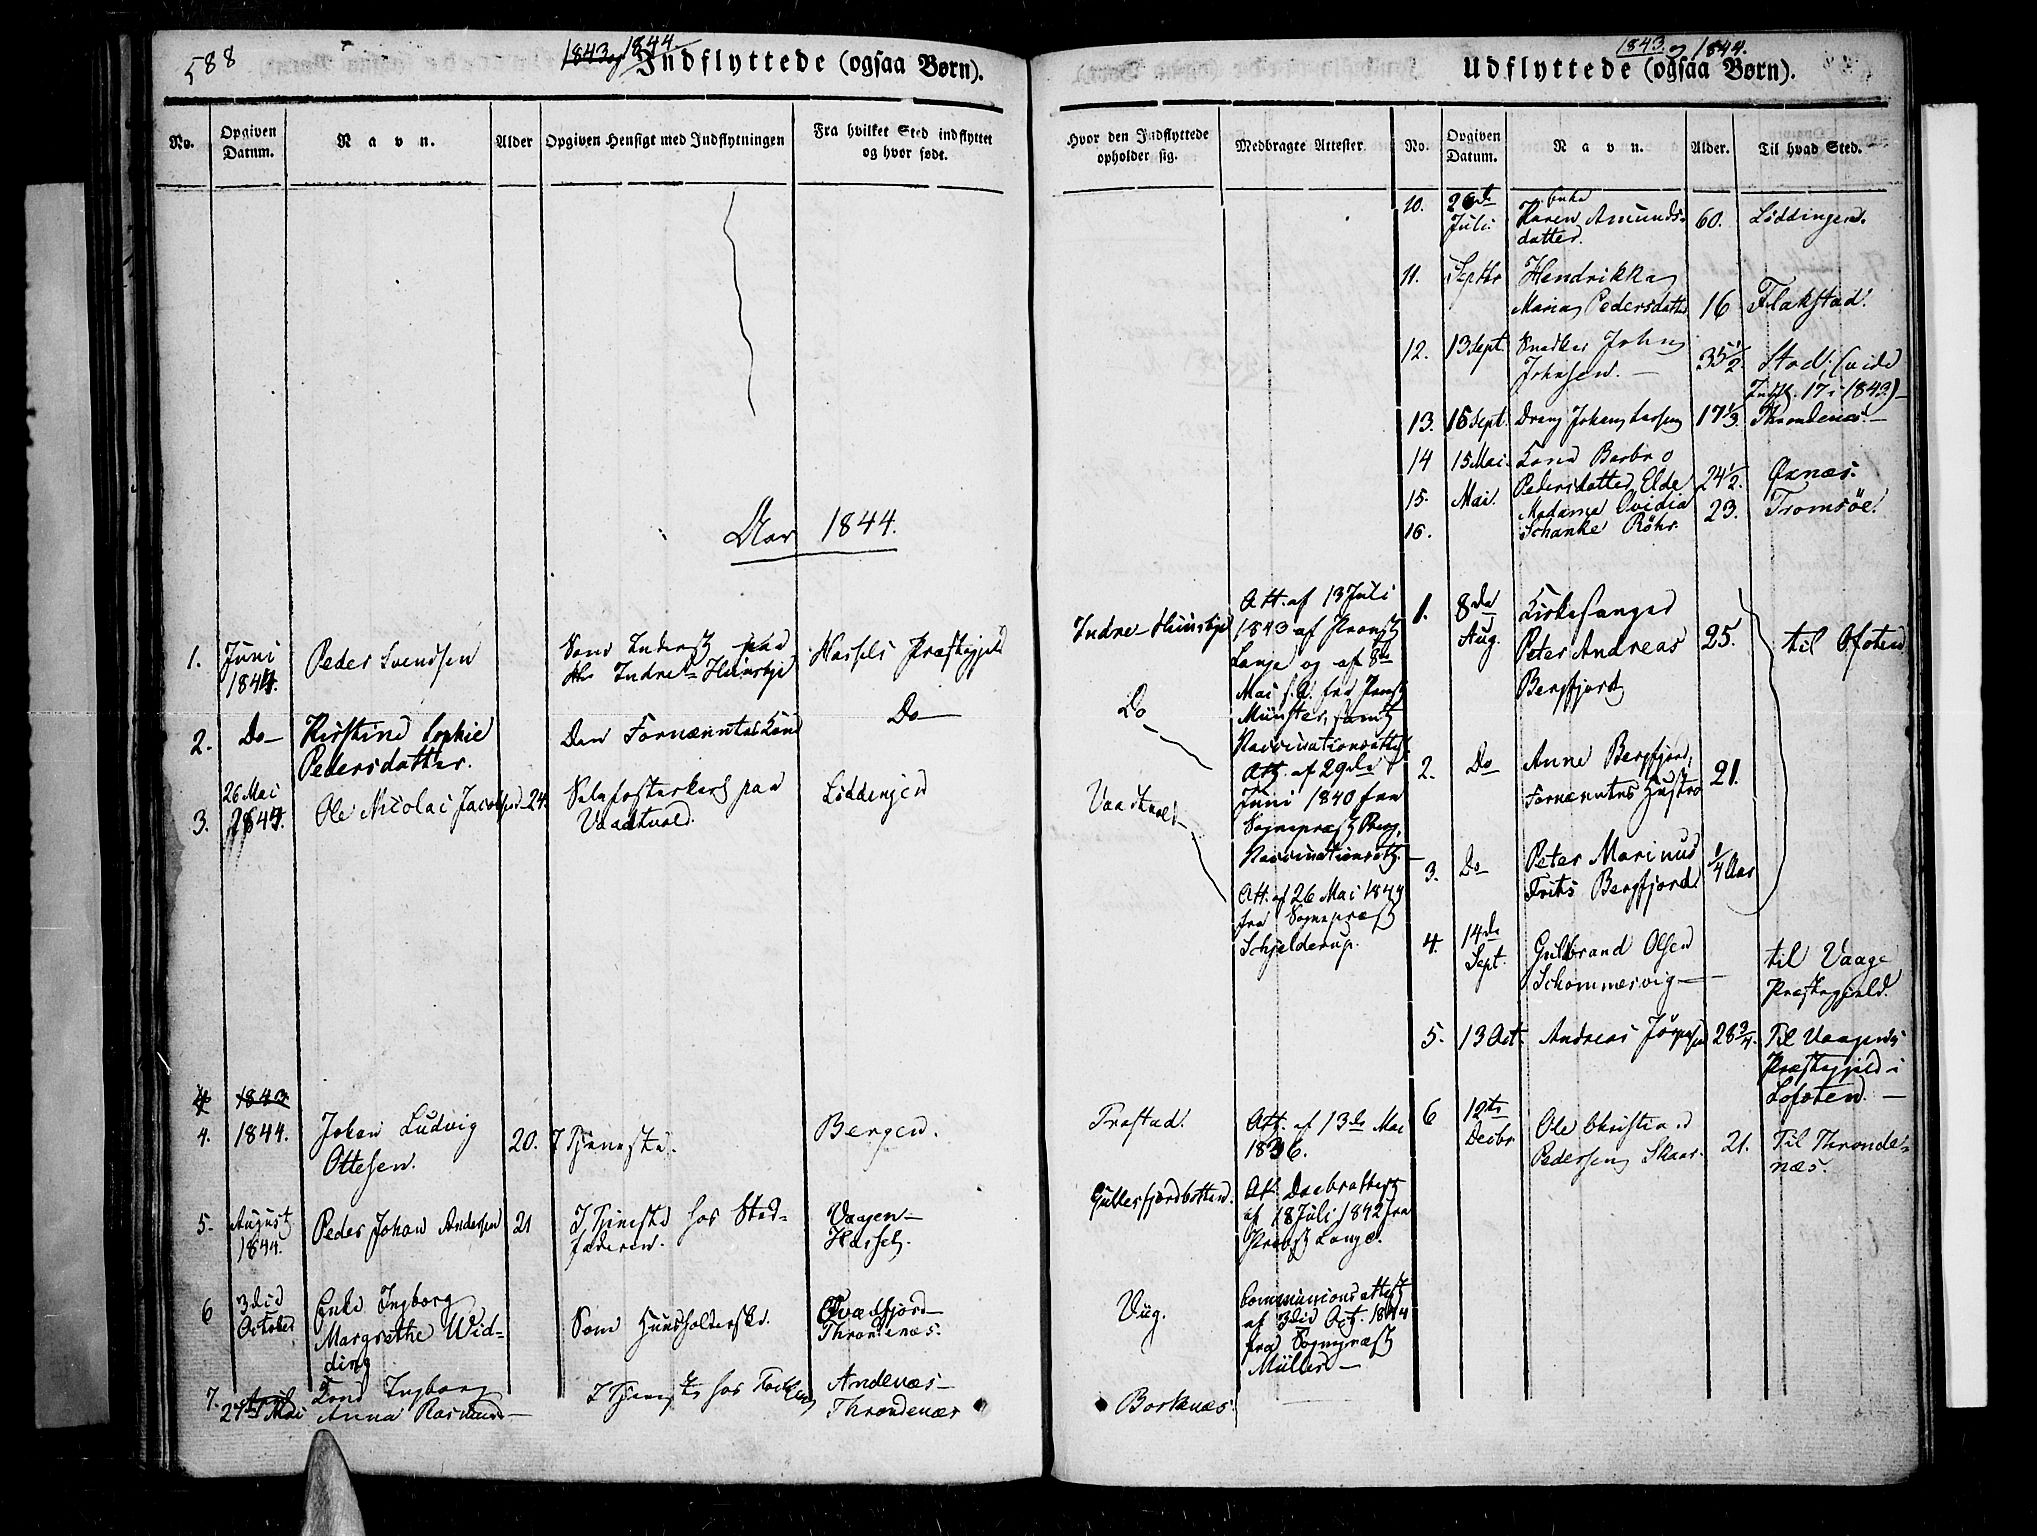 588
1843 og 1844
Indflyttede (ogsaa Børn).
No.
Opgiven Datum.
Navn.
Alder
Opgiven Hensigt med Indflytningen
Fra hvilket Sted indflyttet
og hvor født.
Aar 1844.
1. Juni 1844. Peder Svendsen
Som Inderst paa
Indre Huusbye
Hassels Præstegjeld
2. Do Kirstine Sophie
Pedersdatter.
Den Fornævntes Kone
Do
3. 26 Mai 1844. Ole Nicolai Jacobsen 24.
Vaadtvold.
Löddingen
4 1843
4. 1844. Johan Ludvig
Ottesen.
20. I Tjeneste.
Bergen.
5. August 1844. Peder Johan Andersen 21
I Tjeneste hos Sted-
faderen.
Vaagen-
Hassel.
6 3die October Enke Ingborg
Margrethe Wid-
ding
Som Huusholderske.
Qvædfjord-
Throndenæs.
7. 27de Mai Kone Ingborg
Anna Rasmus-
I Tjeneste hos
Andenæs-
Throndenæs
1843 og 1844.
Udflyttede (ogsaa Børn).
Hvor den Indflyttede
opholder sig.
Medbragte Attester
No.
Opgiven Datum.
Navn.
Alder.
Til hvad Sted.
Indre-Huusbye
Att. af 13 Juli
1843 af Provst
Lange og af 8de
Mai s. A. fra Provst
Münster, samt
Vaccinationsattest
Do
Att. af 29de
Juni 1840 fra
Sognepræst Berg,
Vaccinationsatt.
Vaadtvold
Att. af 26 Mai 1844
fra Sognepræst
Schjelderup.
Trastad.
Att. af 13de Mai
1836.
Gullesfjordbotten.
Att. Daabsattest
af 18 Juli 1842 fra
Provst Lange.
Vüg.
Communionsattest
af 3die Oct. 1844
fra Sognepræst
Müller
Borkenæs
10. 26de Juli. Enke
Karen Amunds-
datter.
60. Löddingen.
11. Septbr Hendrikka
Maria Pedersdatter 16 Flakstad.
12. 13 Sept. Snedker John
Johnsen.
35½. Stod, (vide
Indfl. 17 i 1843)
13. 16 Sept. Dreng Johan Larsen 17⅓. Throndenæs.
14 15 Mai. Kone Barbro
Pedersdatter Elde 24½. Öxnæs.
15. Mai. Madame Ovidia
16. Schanke Röhr. 23. Tromsöe.
1. 8de Aug. Kirkesanger
Peter Andreas
Bergfjord
25. til Ofoten
2. Do Anne Bergfjord,
Fornævntes Hustro
21.
3. Do Peter Marinus
Frits Bergfjord.
¼ Aar
4. 14de Sept. Gulbrand Olsen
Schommesvig
til Vaage
Præstegjeld.
5. 13 Oct. Andreas Jörgensen 28¾. Til Vaagens
Præstegjeld i
Lofoten.
6 12te Decbr Ole Christian
Pedersen Skaar.
21. Til Thronde-
næs.